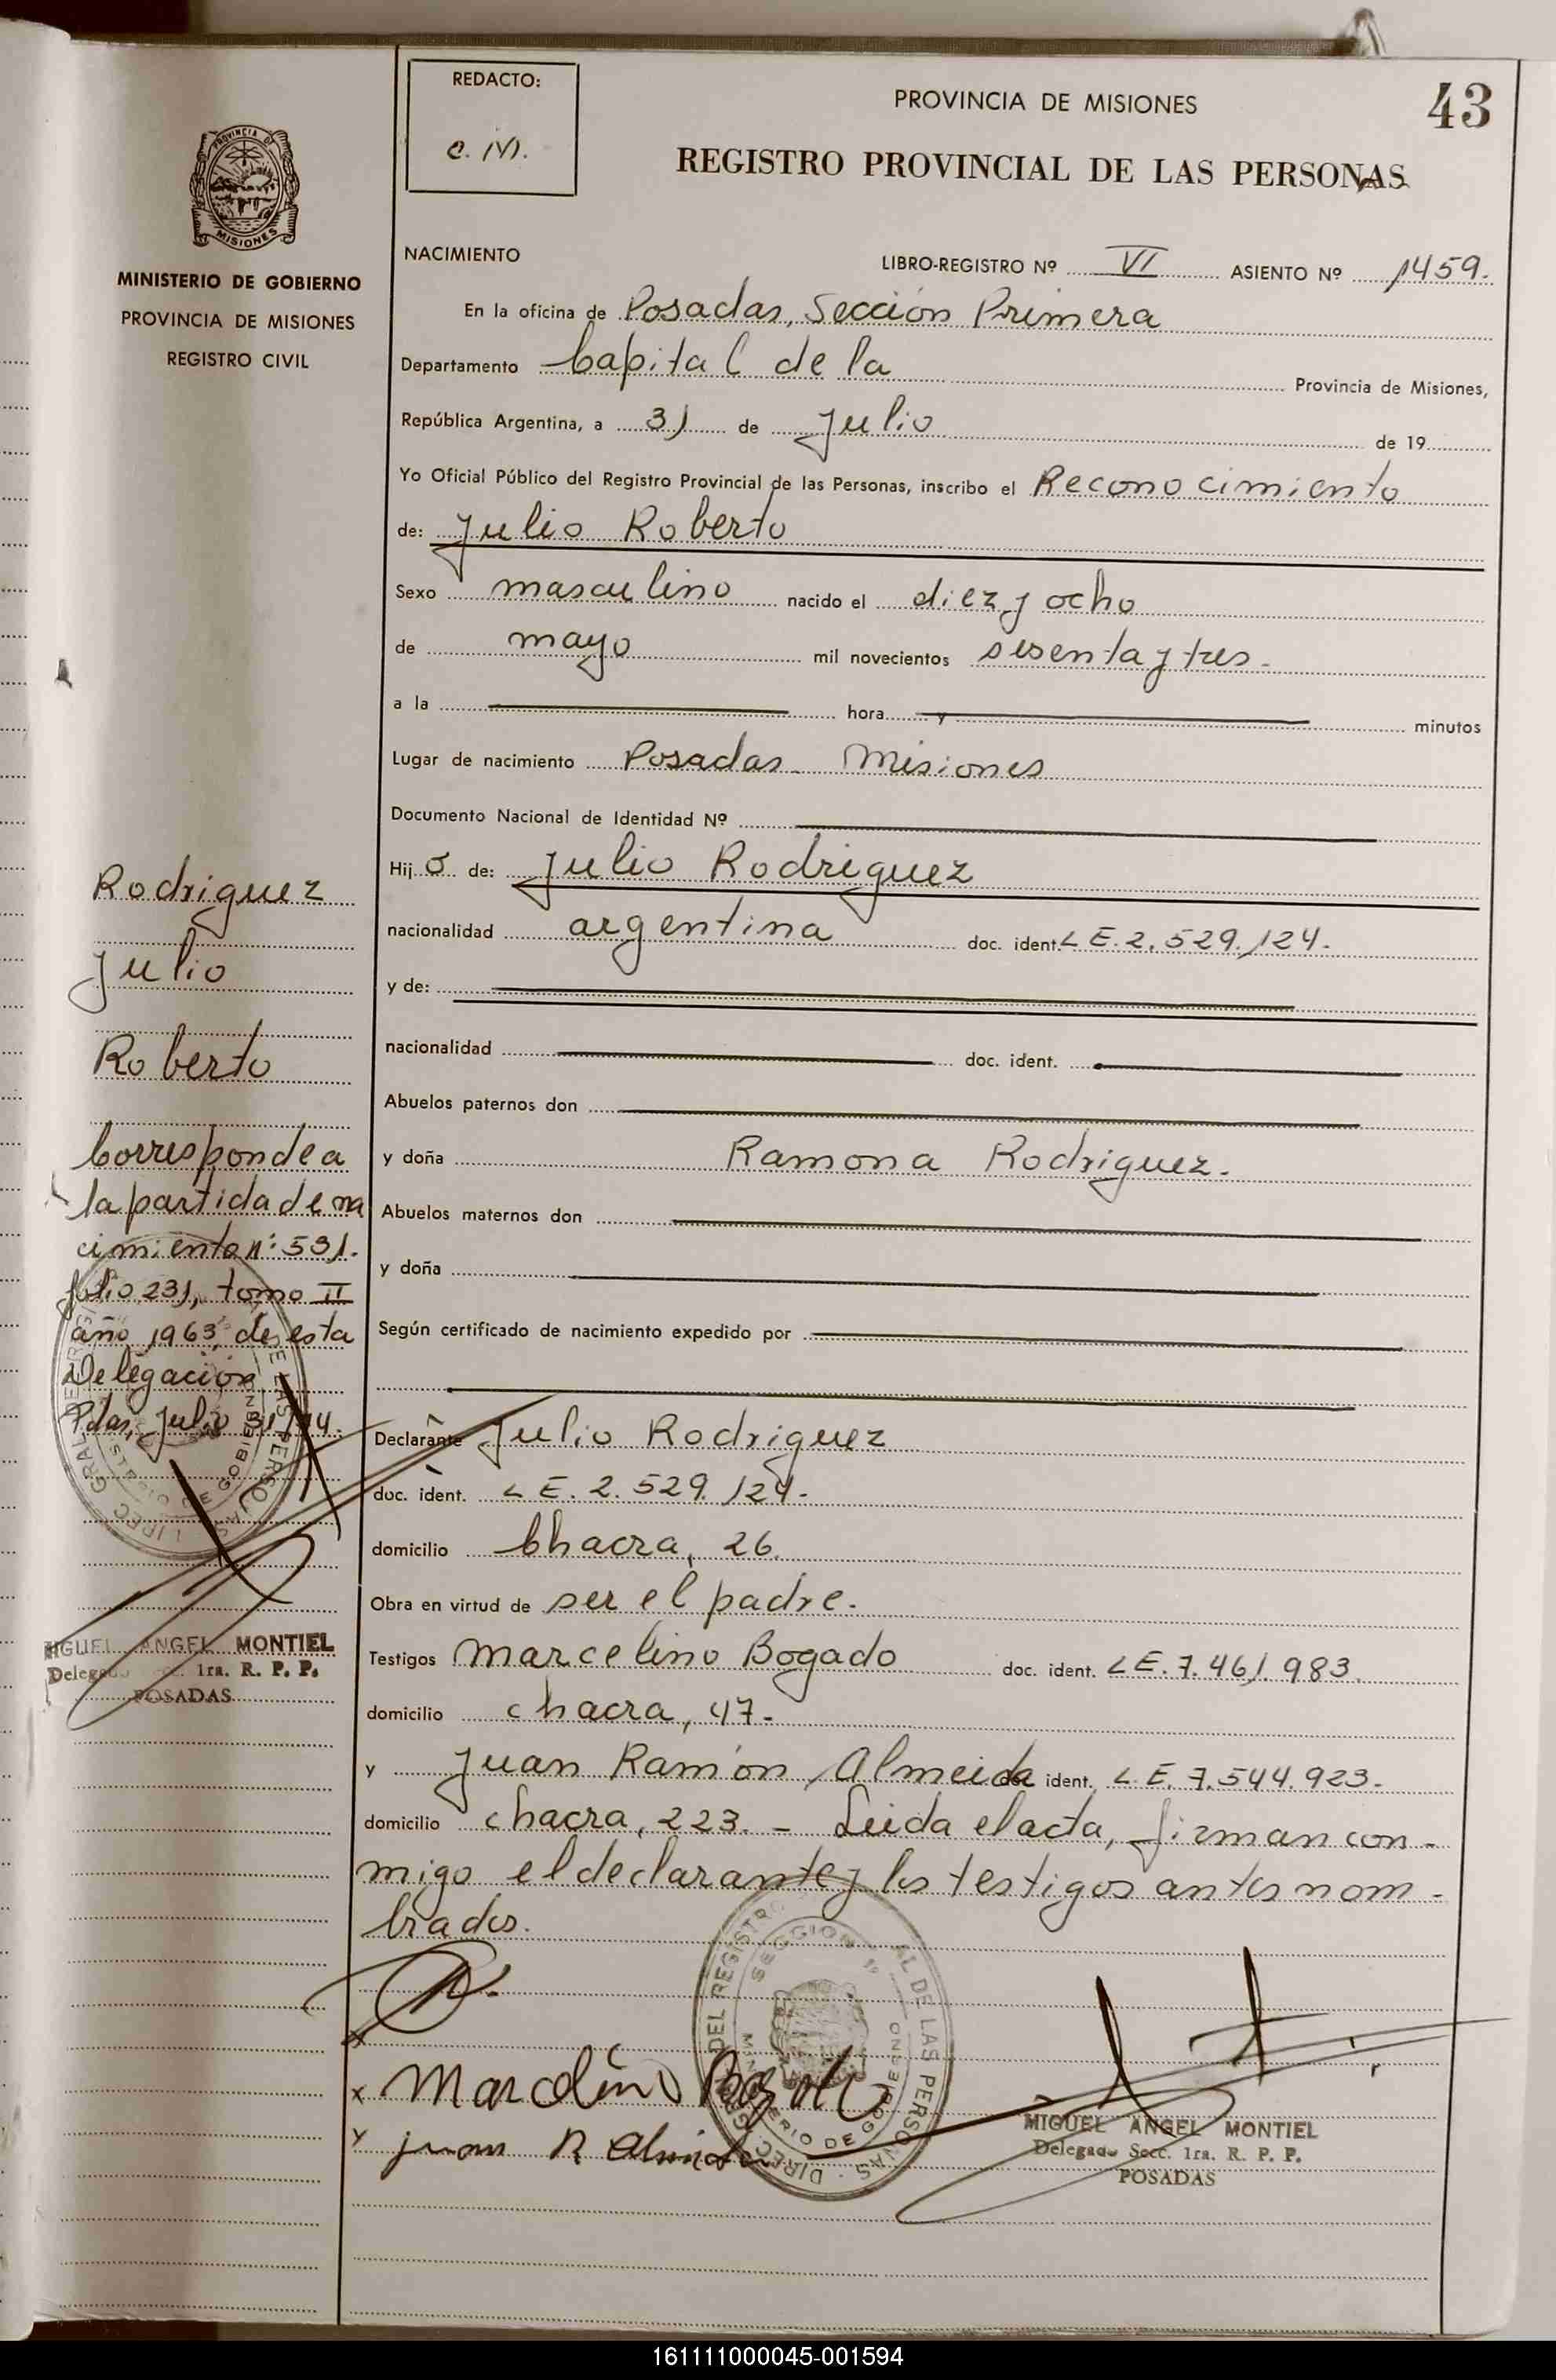 43
REDACTO:
C. M.
PROVINCIA DE MISIONES
REGISTRO PROVINCIAL DE LAS PERSONAS
PROVINCIA DE
MISIONES
MINISTERIO DE GOBIERNO
PROVINCIA DE MISIONES
REGISTRO CIVIL
NACIMIENTO LIBRO-REGISTRO Nº VI ASIENTO Nº 1459.
En la oficina de Posadas, Sección Primera
Departamento Capital de la Provincia de Misiones,
República Argentina, a 31 de Julio de 19
Yo Oficial Público del Registro Provincial de las Personas, inscribo el Reconocimiento
de: Julio Roberto
Sexo masculino nacido el diez y ocho
de mayo mil novecientos sesenta y tres.
a la hora y minutos
Lugar de nacimiento Posadas - Misiones
Documento Nacional de Identidad Nº
Hij o de: Julio Rodriguez
nacionalidad argentina doc. ident. L E. 2. 529. 124.
y de:
nacionalidad doc. ident.
Abuelos paternos don
y doña Ramona Rodriguez.
Abuelos maternos don
y doña
Según certificado de nacimiento expedido por
Declarante Julio Rodriguez
doc. ident. L E. 2. 529. 124.
domicilio Chacra, 26.
Obra en virtud de ser el padre.
Testigos Marcelino Bogado doc. ident. L E. 7. 461. 983.
domicilio chacra, 47-
y Juan Ramón Almeida ident. L. E. 7. 544. 923.
domicilio chacra, 223. - Leida el acta, firman con-
migo el declarante y los testigos antes nom-
brados.
x
x Marcelino Bogado
y juan R Almeida
MIGUEL ANGEL MONTIEL
Delegado Secc. 1ra. R. P. P.
POSADAS
Rodriguez
Julio
Roberto
Corresponde a
la partida de na
cimiento nº: 531.
folio 231, tomo II
año 1963, de esta
Delegación
Pdas, Julio 31/74.
MIGUEL ANGEL MONTIEL
Delegado Secc. 1ra. R. P. P.
POSADAS
161111000045-001594